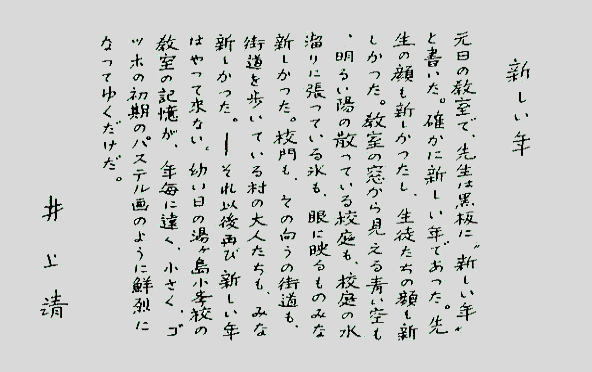 新しい年
元日の教室で、先生は黒板に〝新しい年〟
と書いた。確かに新しい年であった。先
生の顔も新しかったし、生徒たちの顔も新
しかった。教室の窓から見える青い空も
、明るい陽の散っている校庭も、校庭の水
溜りに張っている氷も、眼に映るものみな
新しかった。校門も、その向うの街道も、
街道を歩いている村の大人たちも、みな
新しかった。――それ以後再び新しい年
はやって来ない。幼い日の湯ヶ島小学校の
教室の記憶が、年毎に遠く、小さく、ゴ
ッホの初期のパステル画のように鮮烈に
なってゆくだけだ。
井上清